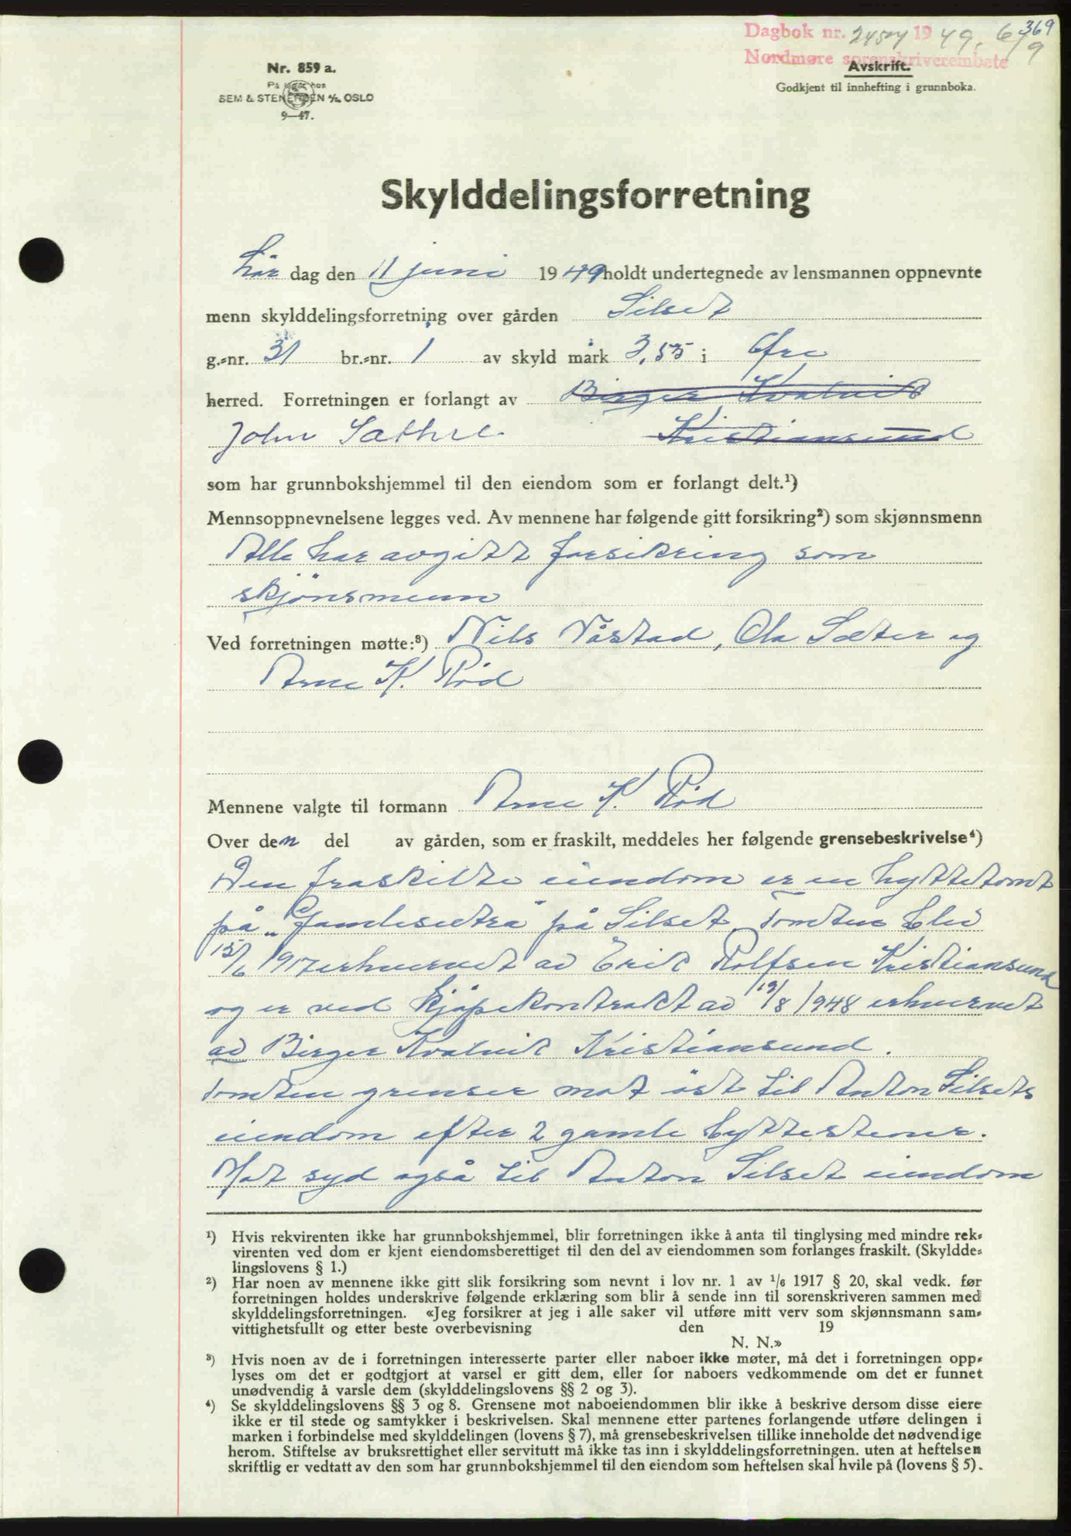 Dagbok nr. 2457 1949. 6/9
369
Nordmøre sorenskriverembete
Nr. 859 a.
På lager hos
SEM & STENERSEN A/S OSLO
9—47.
Avskrift.
Godkjent til innhefting i grunnboka.
Skylddelingsforretning
Lør dag den 11 juni 1949 holdt undertegnede av lensmannen oppnevnte
menn skylddelingsforretning over gården Silset
g.-nr. 31 br.-nr. 1 av skyld mark 3,55 i Øre
herred. Forretningen er forlangt av Birger Kvalvik
John Sæthre. Kristiansund
som har grunnbokshjemmel til den eiendom som er forlangt delt.¹)
Mennsoppnevnelsene legges ved. Av mennene har følgende gitt forsikring²) som skjønnsmenn
Alle har avgitt forsikring som
skjønsmenn
Ved forretningen møtte:³) Nils Våstad, Ola Sæter og
Arne K. Rød
Mennene valgte til formann Arne K. Rød
Over den del av gården, som er fraskilt, meddeles her følgende grensebeskrivelse⁴)
Den fraskilte eiendom er en hyttetomt
på „Gamlesetra" på Silset. Tomten blev
15/6 1917 erhvervet av Erik Rolfsen Kristiansund
og er ved kjøpekontrakt av 19/8 1948 erhvervet
av Birger Kvalvik Kristiansund.
Tomten grenser mot øst til Anton Silsets
eiendom efter 2 gamle byttesteiner.
Mot syd også til Anton Silset eiendom
¹) Hvis rekvirenten ikke har grunnbokshjemmel, blir forretningen ikke å anta til tinglysing med mindre rek-
virenten ved dom er kjent eiendomsberettiget til den del av eiendommen som forlanges fraskilt. (Skyldde-
lingslovens § 1.)
²) Har noen av mennene ikke gitt slik forsikring som nevnt i lov nr. 1 av 1/6 1917 § 20, skal vedk. før
forretningen holdes underskrive følgende erklæring som blir å sende inn til sorenskriveren sammen med
skylddelingsforretningen. «Jeg forsikrer at jeg i alle saker vil utføre mitt verv som skjønnsmann sam-
vittighetsfullt og etter beste overbevisning den 19
N. N.»
³) Hvis noen av de i forretningen interesserte parter eller naboer ikke møter, må det i forretningen opp-
lyses om det er godtgjort at varsel er gitt dem, eller for naboers vedkommende om det er funnet
unødvendig å varsle dem (skylddelingslovens §§ 2 og 3).
⁴) Se skylddelingslovens §§ 3 og 8. Grensene mot naboeiendommen blir ikke å beskrive dersom disse eiere
ikke er til stede og samtykker i beskrivelsen. Skal mennene etter partenes forlangende utføre delingen i
marken i forbindelse med skylddelingen (lovens § 7), må grensebeskrivelsen tillike inneholde det nødvendige
herom. Stiftelse av bruksrettighet eller servitutt må ikke tas inn i skylddelingsforretningen. uten at heftelsen
skriftlig er vedtatt av den som har grunnbokshjemmel til den eiendom som heftelsen skal hvile på (lovens § 5).